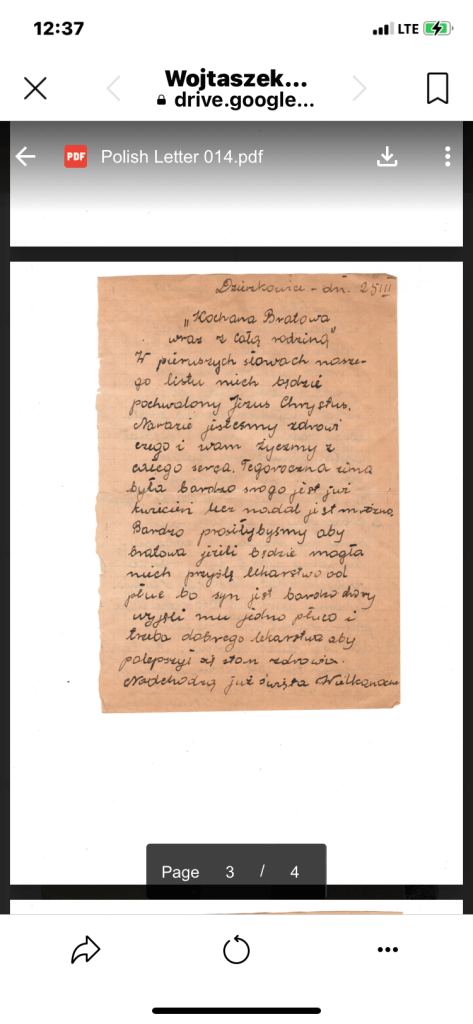 12:37
LTE
Wojtaszek...
drive.google...
PDF Polish Letter 014.pdf
Dzierzkowice - dn. 25 III
"Kochana Bratowa
wraz z całą rodziną"
W pierwszych słowach nasze-
go listu niech będzie
pochwalony Jezus Chrystus.
Narazie jesteśmy zdrowi
czego i wam życzmy z
całego serca. Tegoroczna zima
była bardzo srogo jest już
kwiecień lecz nadal jest mroźna
Bardzo prosiłybyśmy aby
bratowa jeżeli będzie mogła
niech przyśle lekarstwo od
płuc bo syn jest bardzo chory
wyjęli mu jedno płuco i
trzeba dobrego lekarstwa aby
polepszył się stan zdrowia.
Nadchodzą już święta Wielkanocne
Page 3 / 4